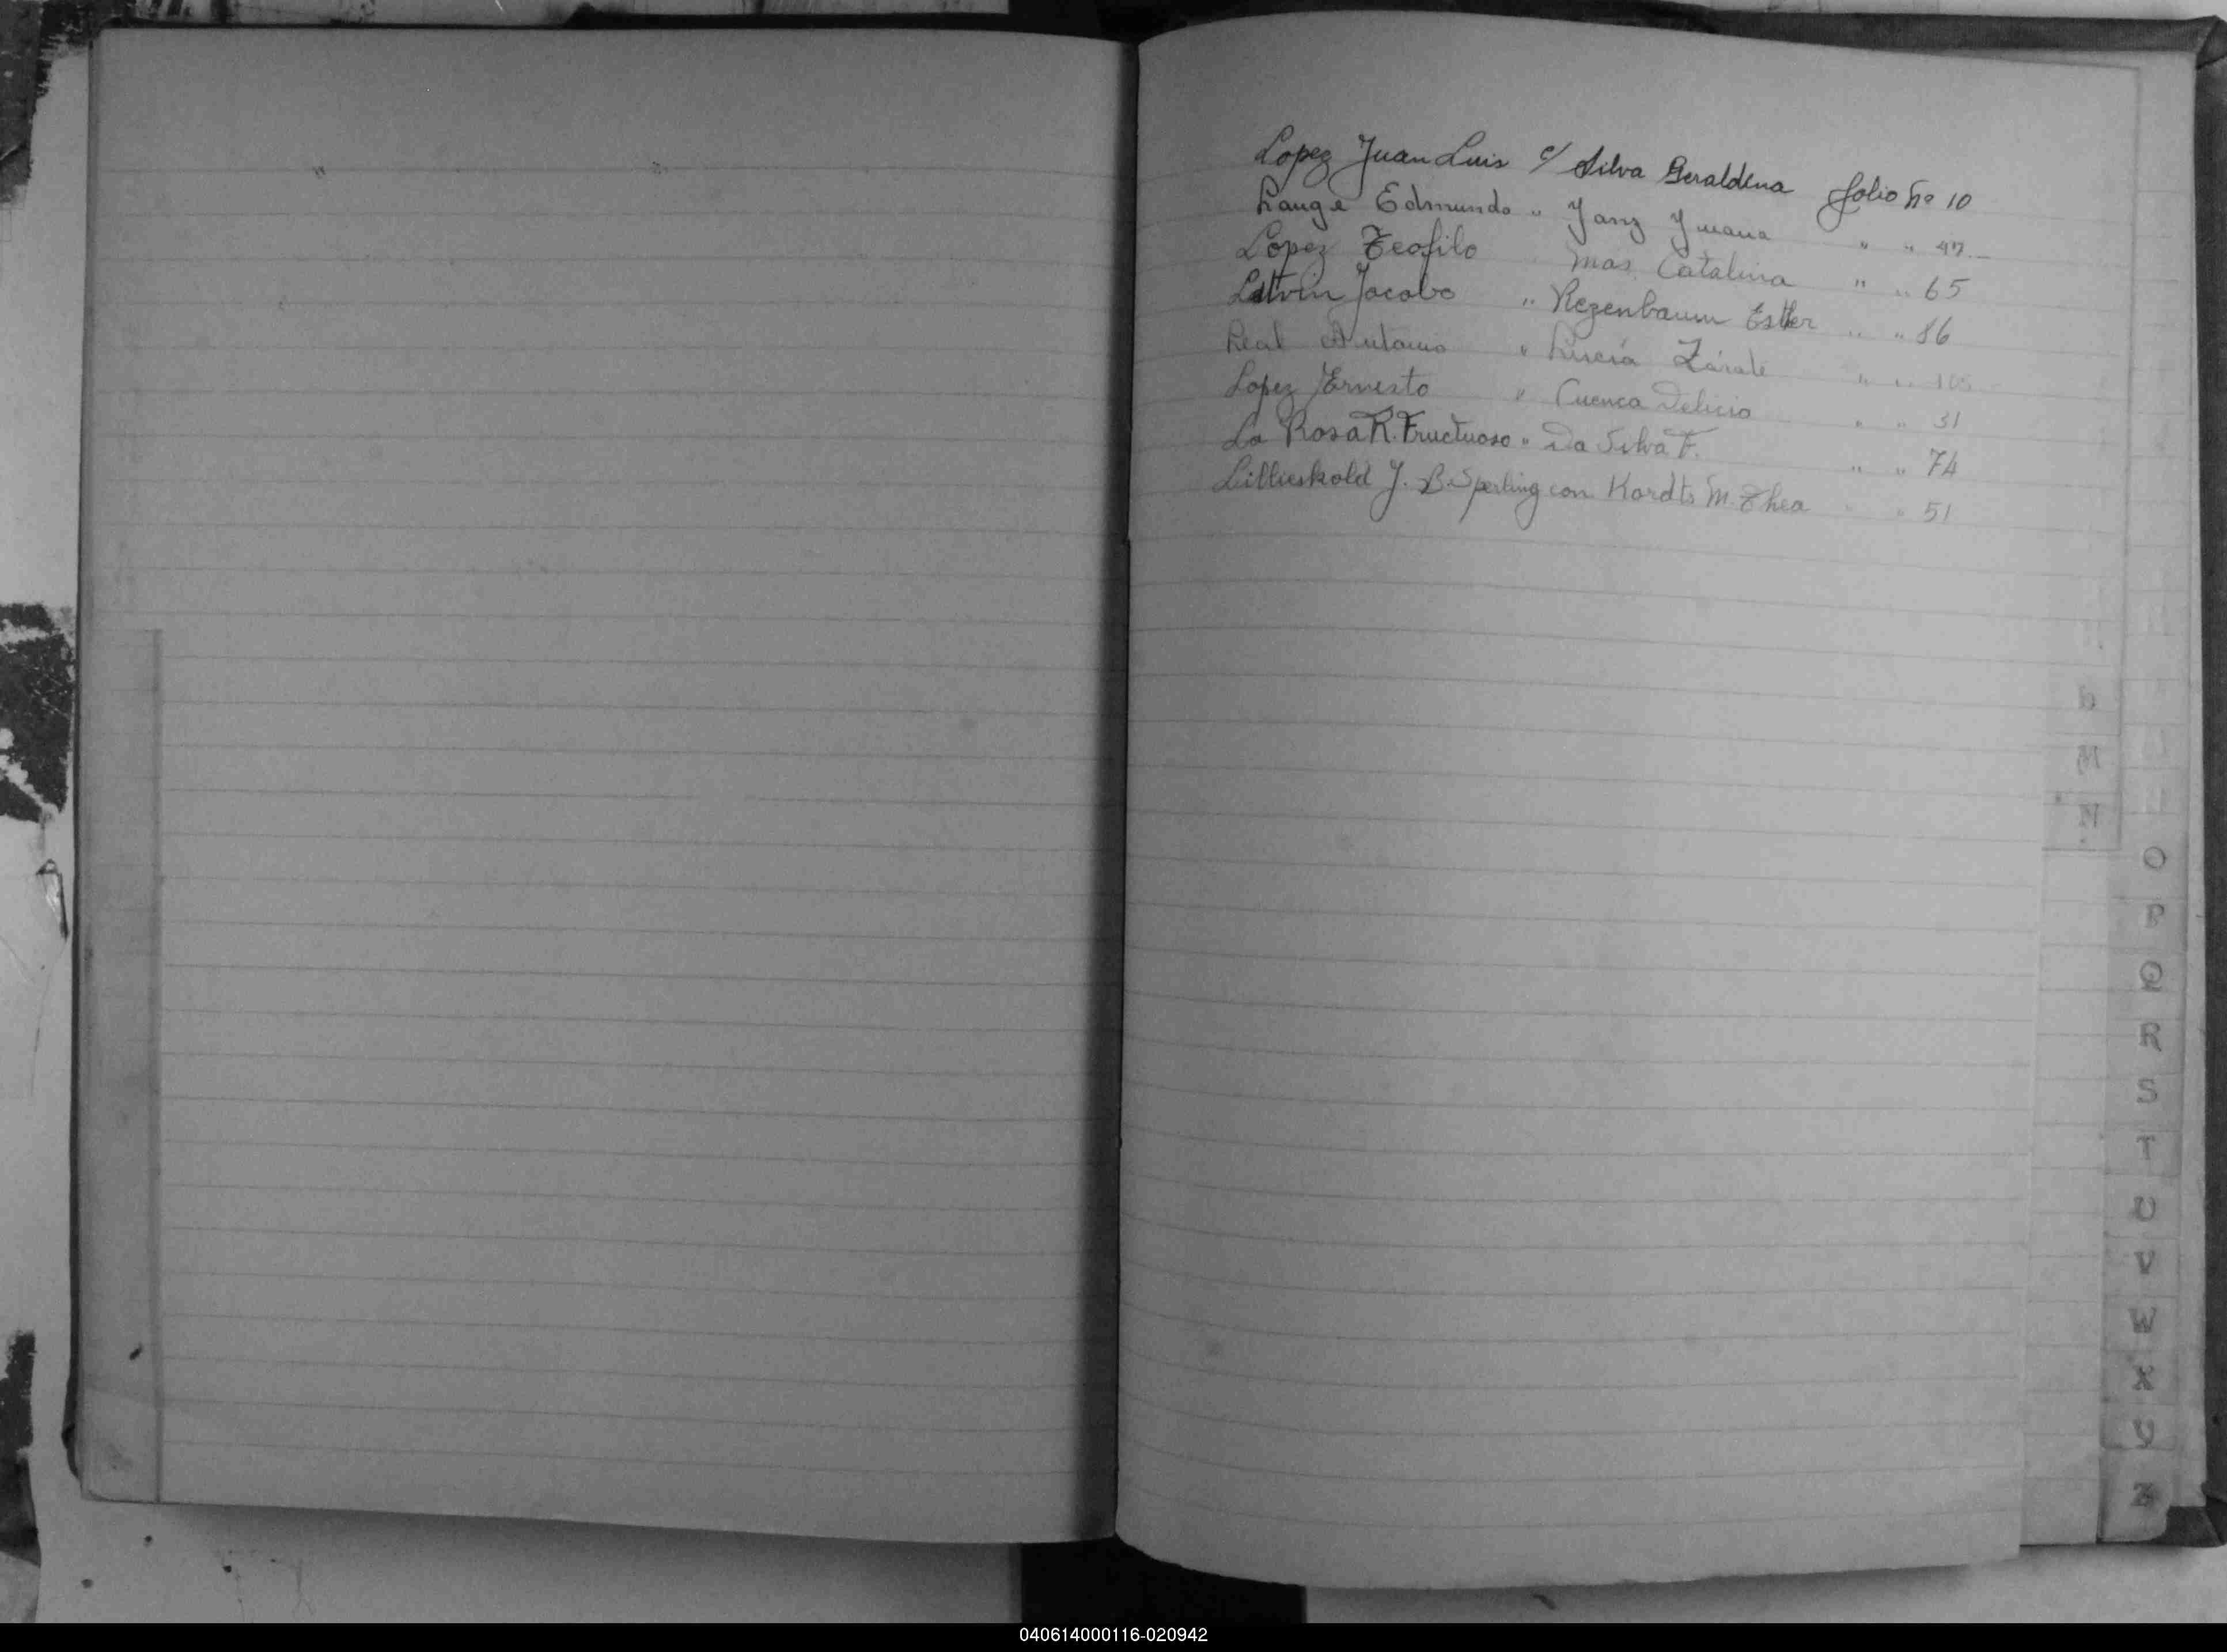 Lopez Juan Luis c/ Silva Geraldina folio Nº 10
Lange Edmundo " Janz Juana " " 47.-
Lopez Teofilo Mas Catalina " " 65
Litvin Jacobo " Rezenbaum Esther " " 86
Leal Antonio " Lucia Zárate " " 105
Lopez Ernesto " Cuenca Delicia " " 31
La Rosa R. Fructuoso " Da Silva F. " " 74
Lillieskold J. B. Sperling con Kordts M. Thea " " 51
M
N
O
P
Q
R
S
T
U
V
W
X
Y
Z
040614000116-020942